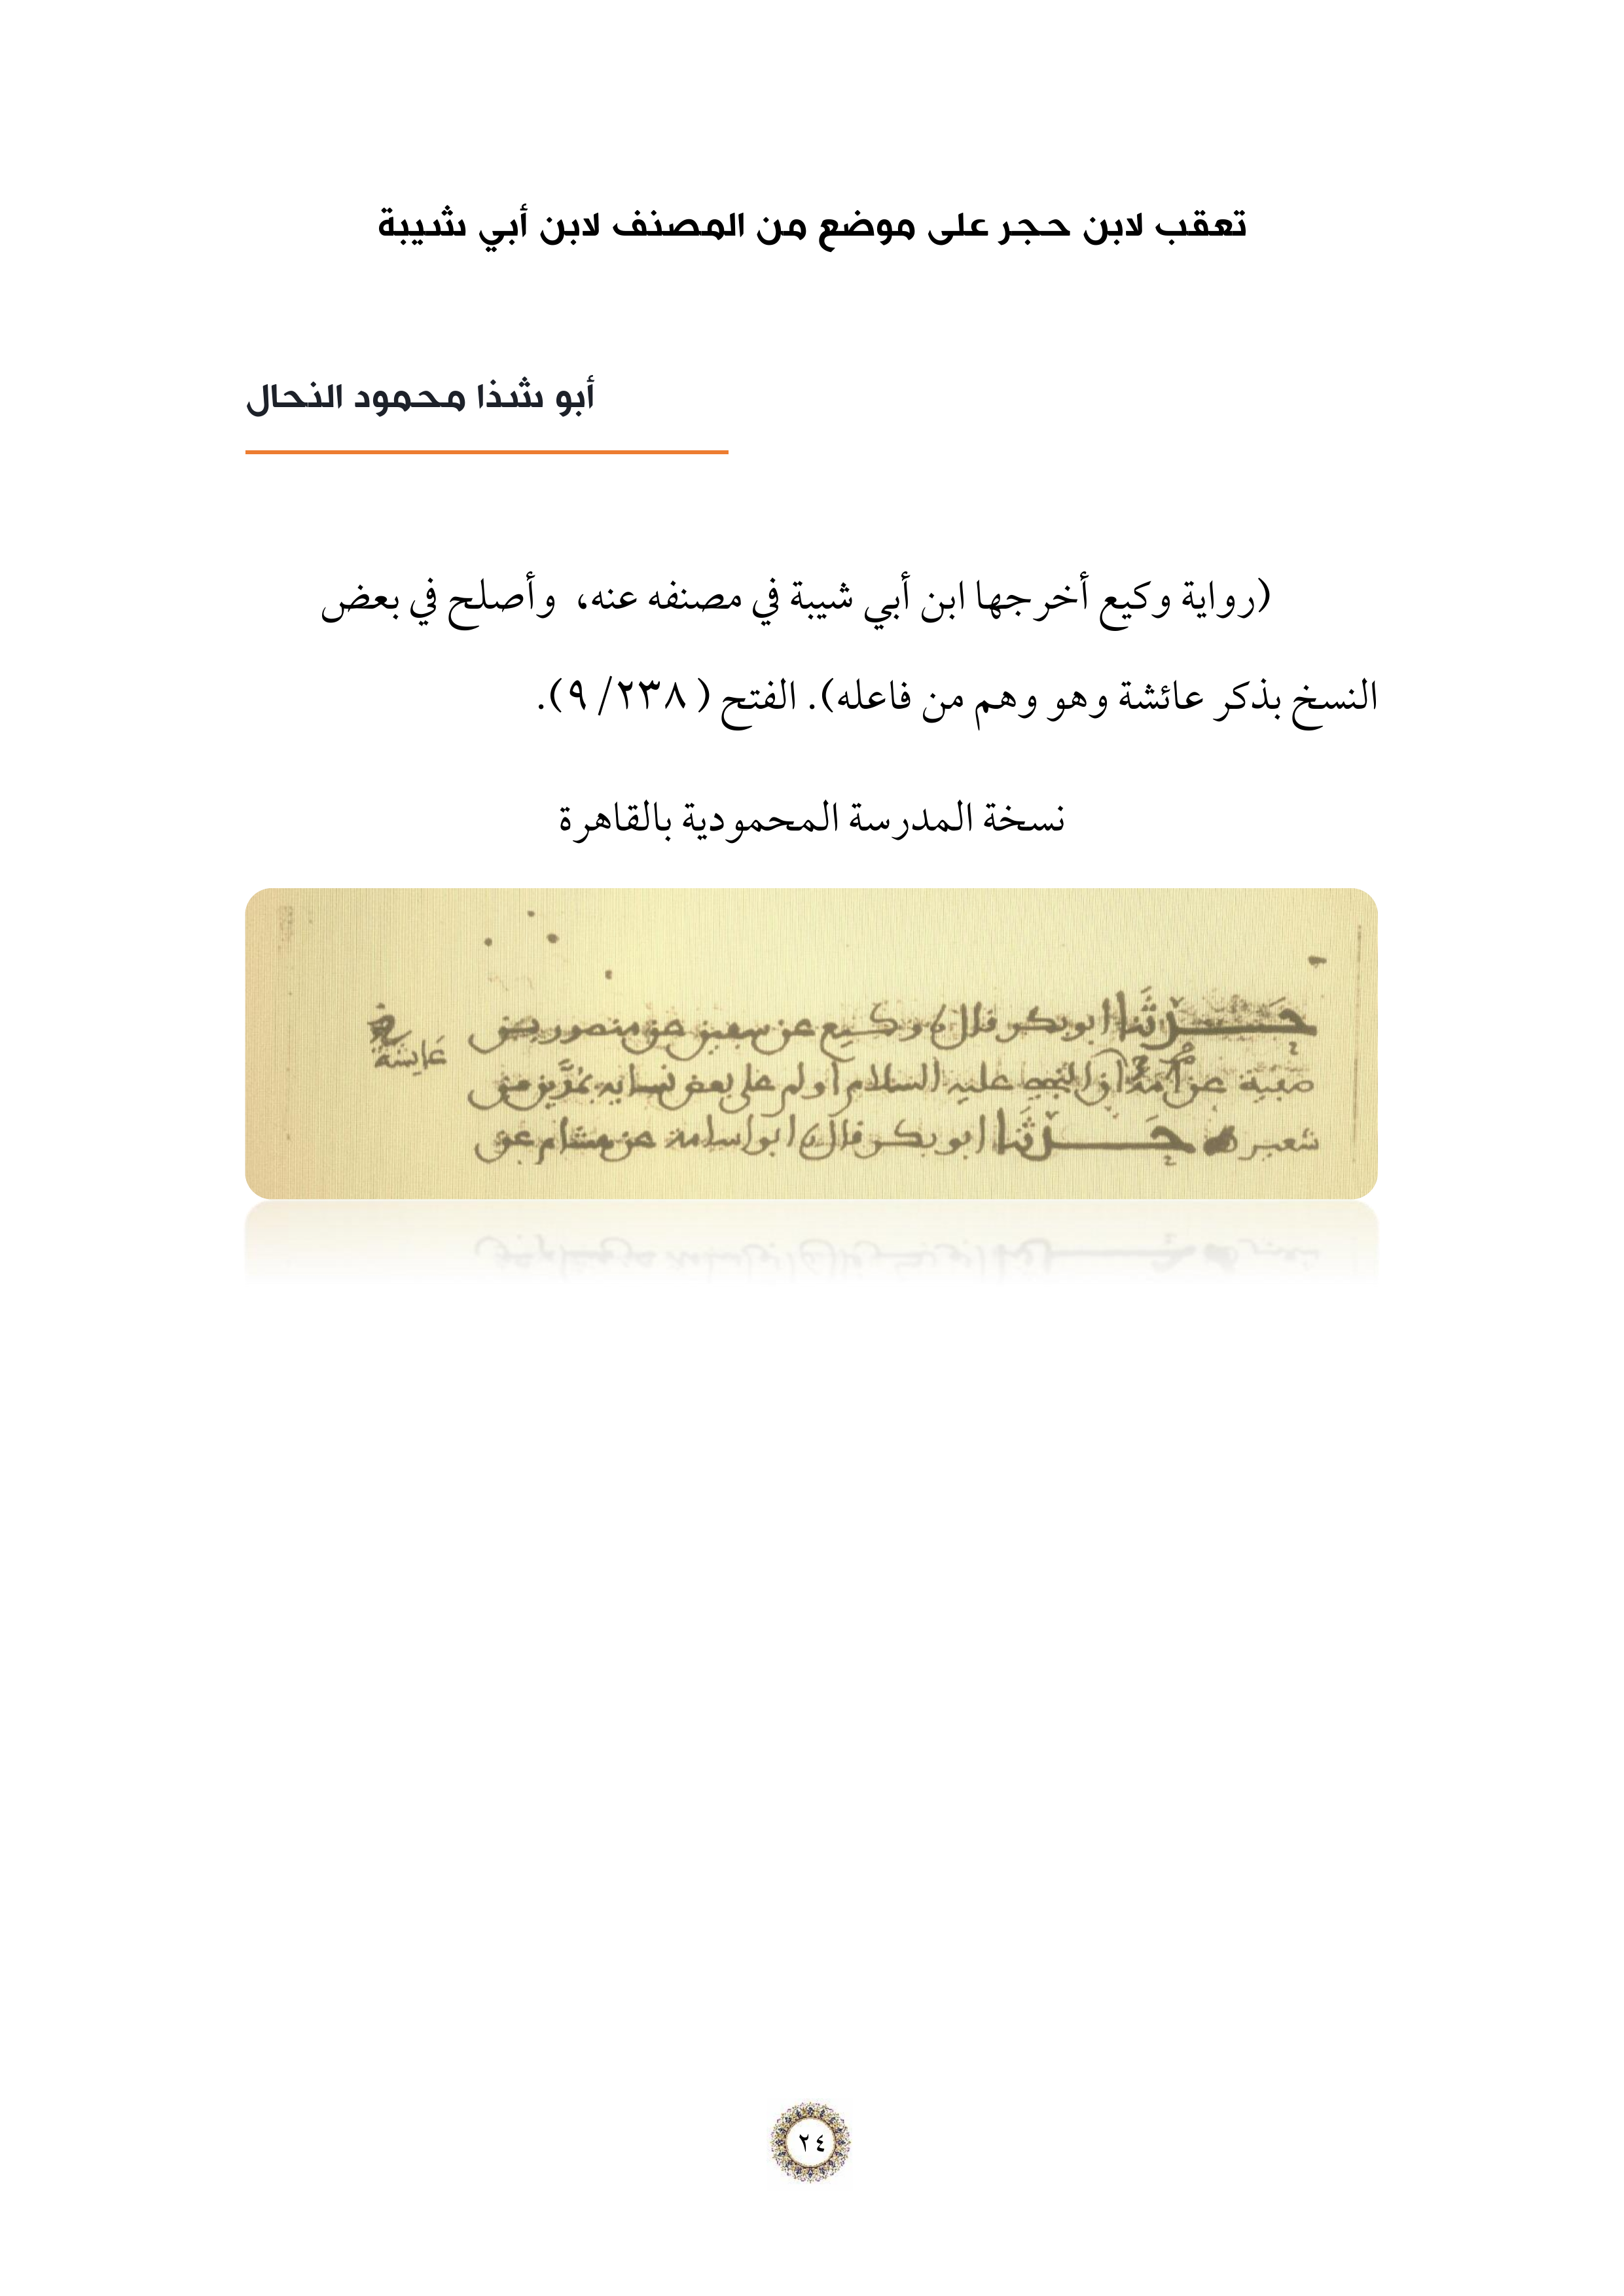 تعقب لابن حجر على موضع من المصنف لابن أبي شيبة
أبو شذا محمود النحال
(رواية وكيع أخرجها ابن أبي شيبة في مصنفه عنه، وأصلح في بعض
النسخ بذكر عائشة وهو وهم من فاعله). الفتح ( ٢٣٨/ ٩).
نسخة المدرسة المحمودية بالقاهرة
حدثنا ابو بكر قال وكيع عن سفين عن منصور بن
عايشة
صفية عن أمه أن النبي عليه السلام أولم على بعض نسايه بمدين من
شعير حدثنا ابو بكر قال ابو اسامة عن هشام عن
٢٤